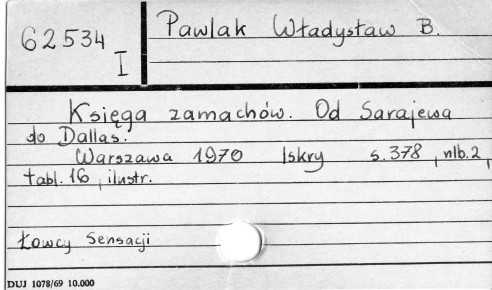 62534
I
Pawlak Władysław B.
Księga zamachów. Od Sarajewa
do Dallas.
Warszawa 1970 Iskry s.378, nlb.2,
tabl.16, ilustr.
Łowcy Sensacji
DUJ 1078/69 10.000